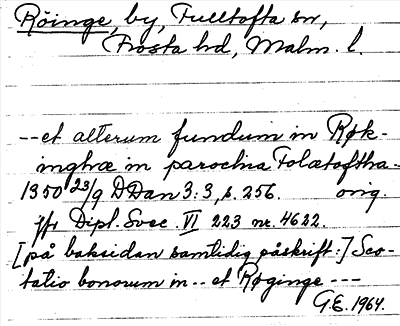 Röinge, by, Fulltofta sn,
Frosta hd, Malm. l.
--et alterum fundum in Røk-
inghæ in parochia Folætoftha-
1350 23/9 DDan 3:3, s. 256. orig.
jfr Dipl. Svec. VI 223 nr. 4622.
[på baksidan samtidig påskrift:] Sco-
tatio bonorum in -- et Røginge ---
G.E. 1964.